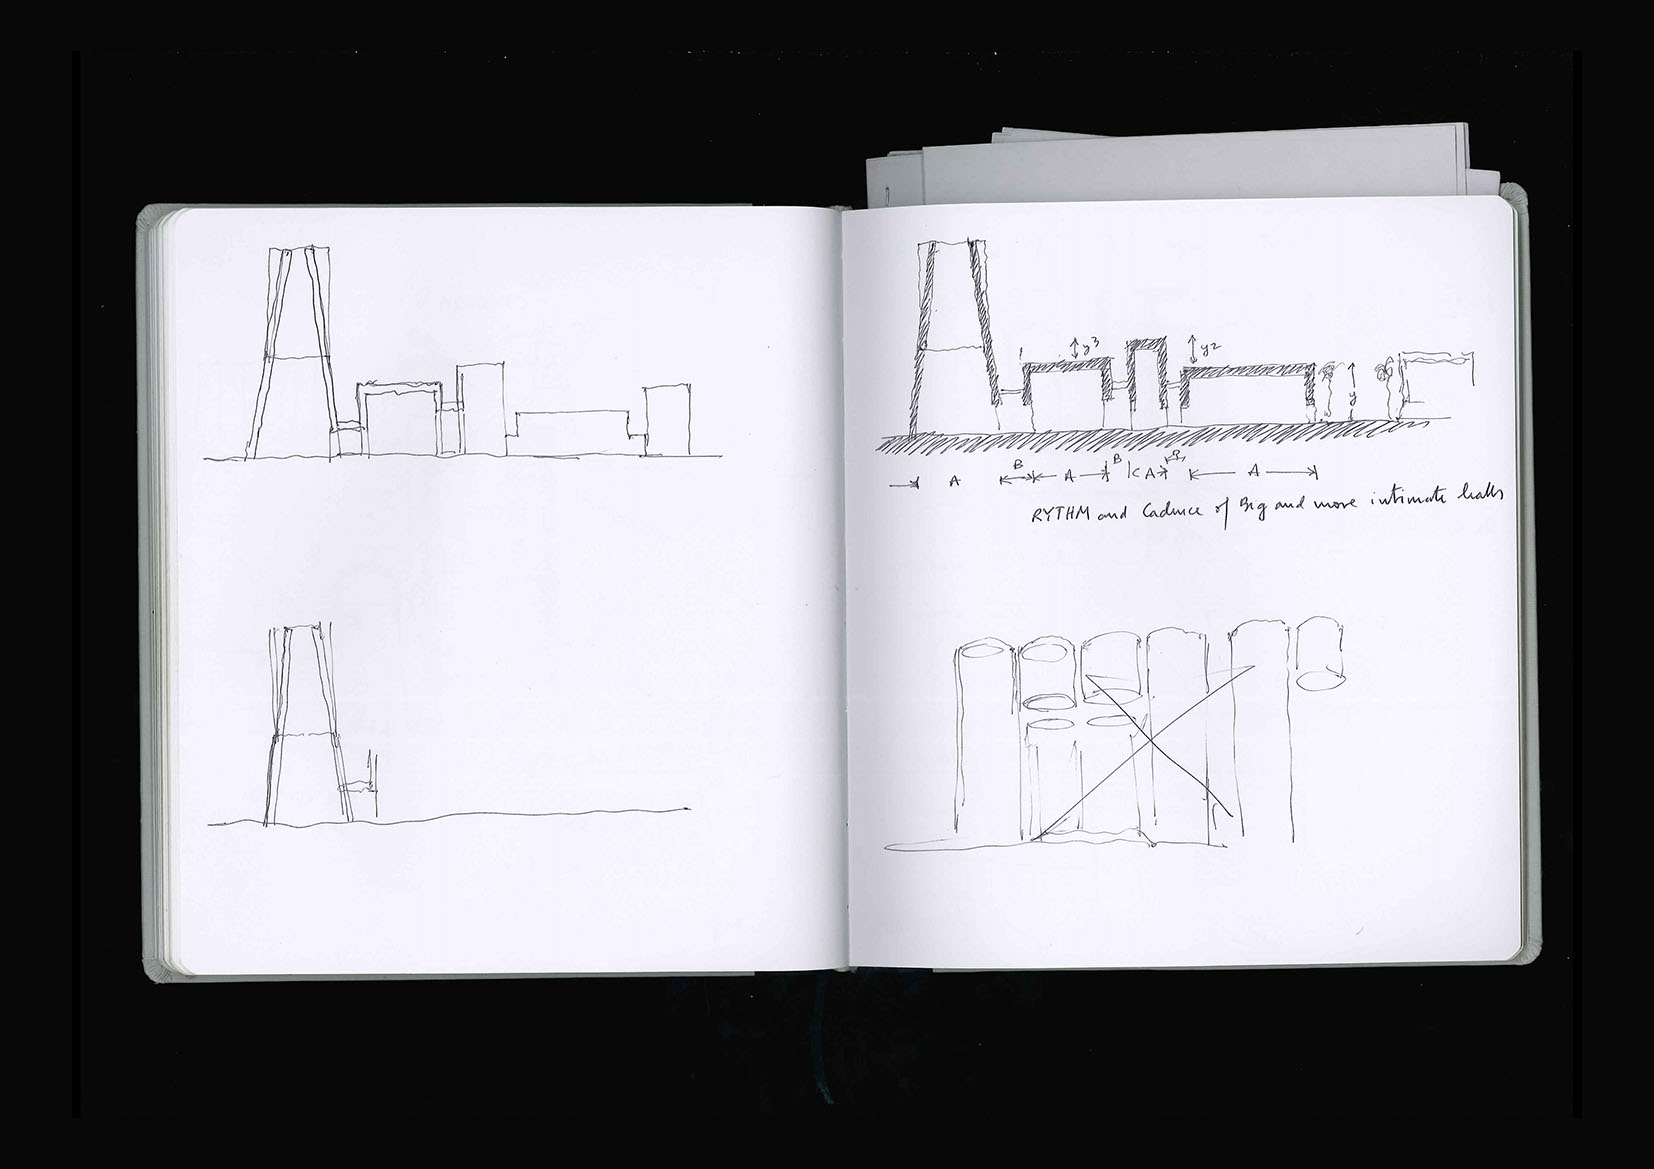 y3 y2
y
A B A B A B A
RYTHM and Cadence of Big and more intimate halls